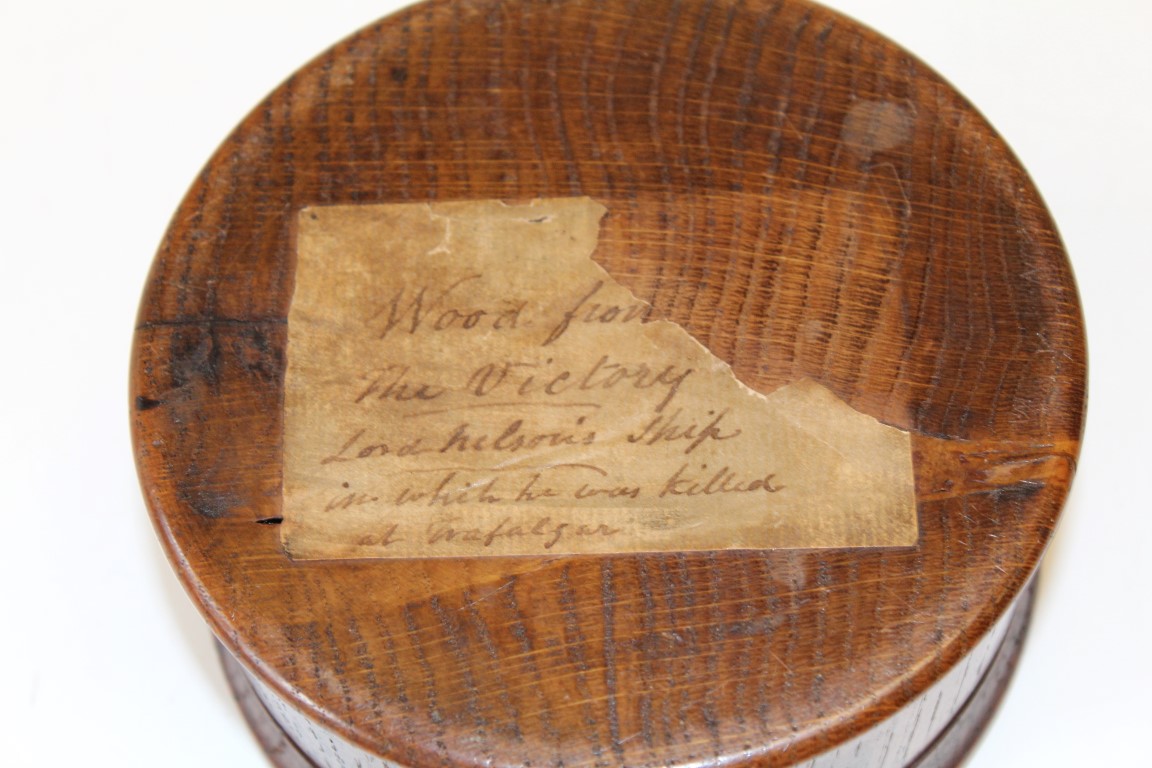 Wood from
The Victory
Lord Nelson's Ship
in which he was killed
at Trafalgar